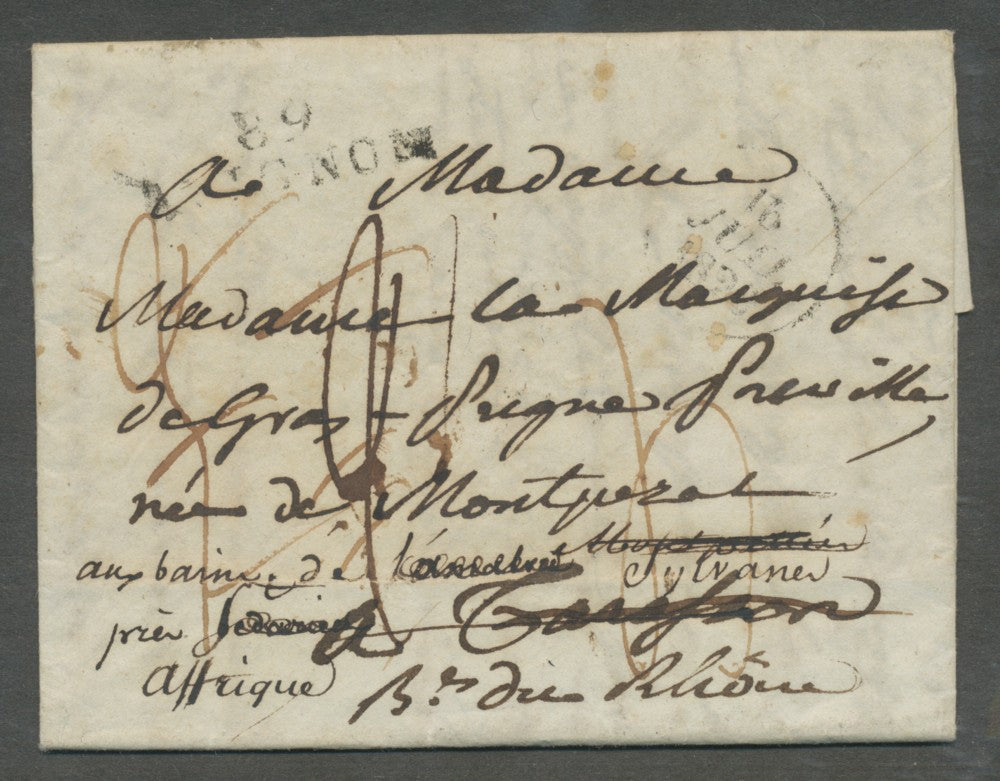 89
AVIGNON
16
JUIL
A Madame
Madame La Marquise
de Gras - Preigne Preville
née de Montpezat
Montpellier
aux bains de Sylvanes
près
à Tarascon
Affrique
B.es du Rhône